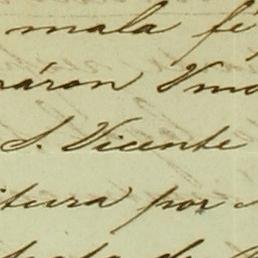 mala fé
ráron Vmc
S. Vicente
itura por